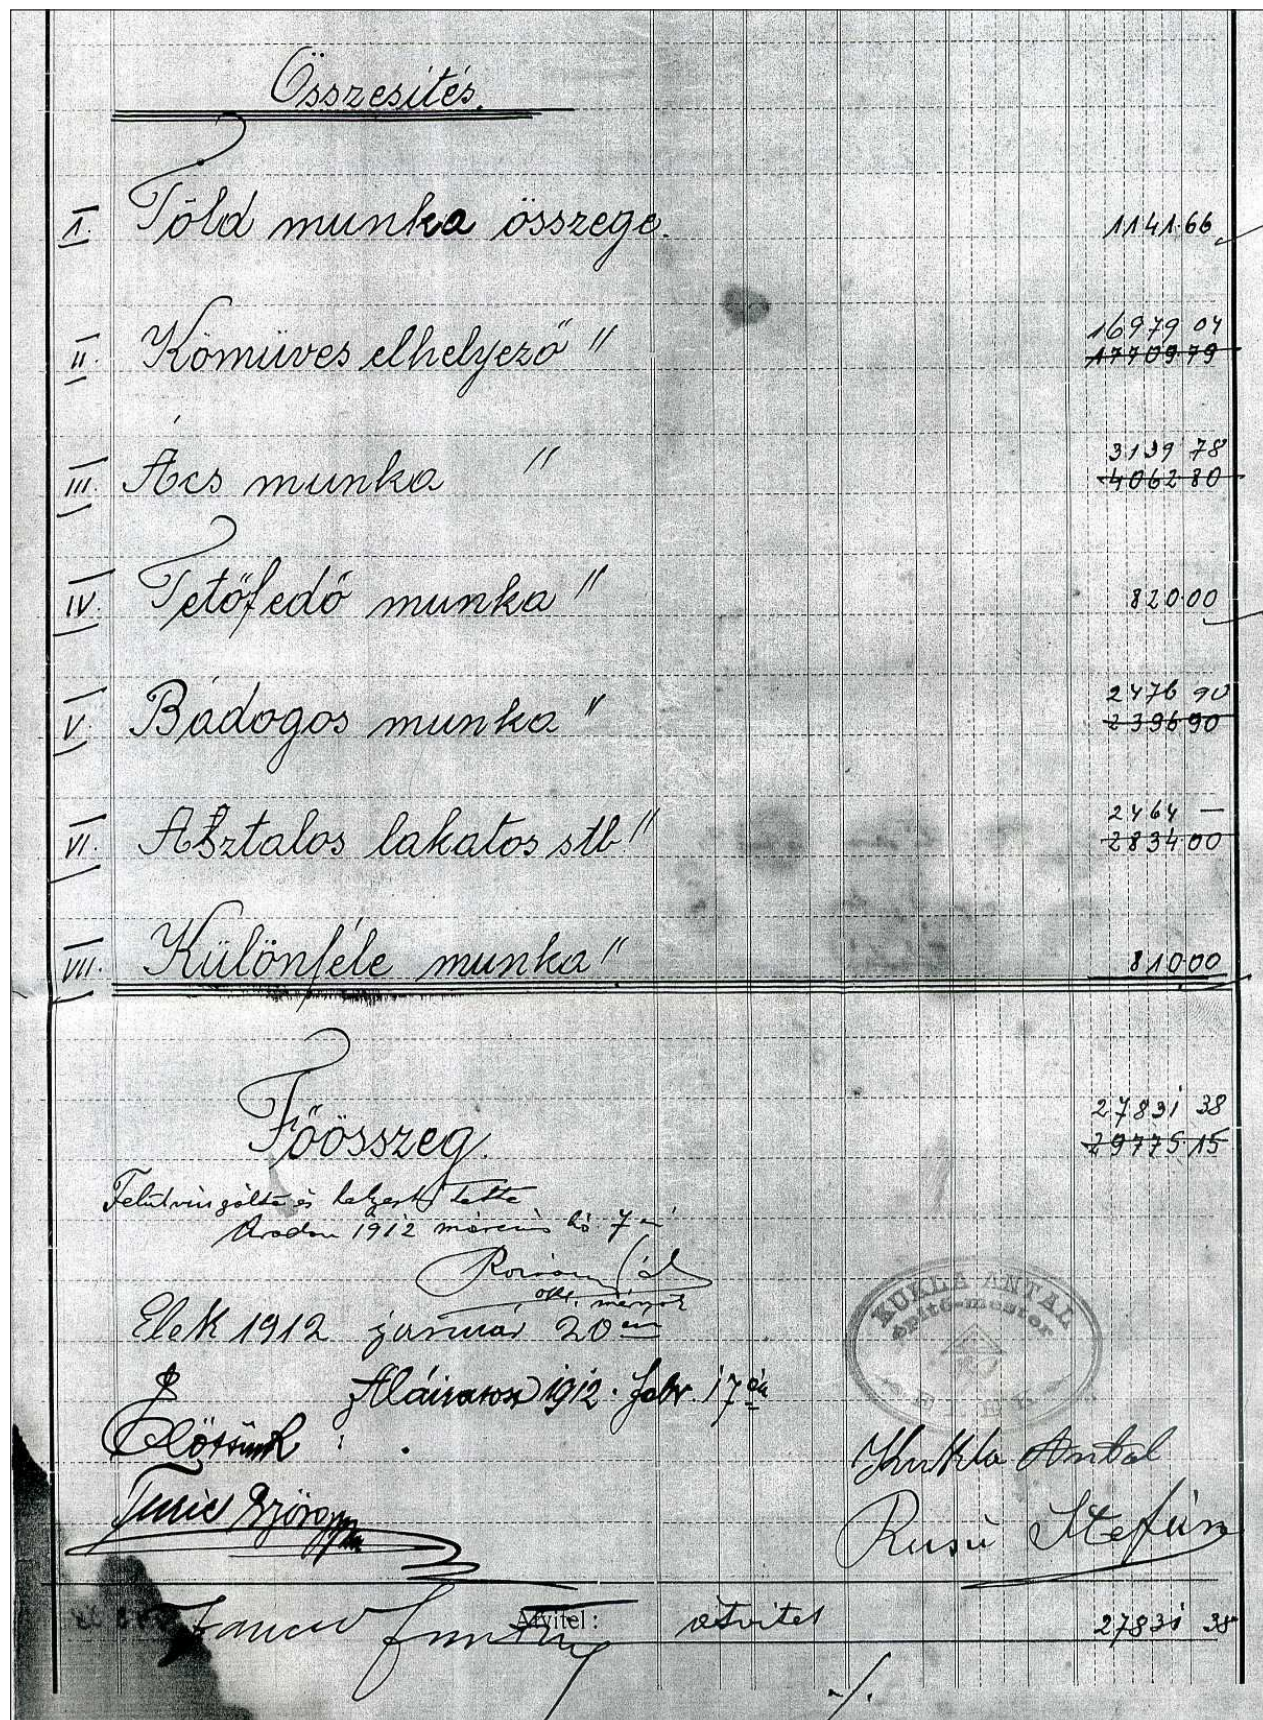 Összesítés.
I. Föld munka összege. 1141.66
II. Kömüves elhelyező " 16979 04
17709.79
III. Ács munka " 3139 78
4062 80
IV. Tetőfedő munka " 820.00
V. Bádogos munka " 2476 90
2396 90
VI. Asztalos lakatos stb " 2464 —
2834 00
VII. Különféle munka " 810.00
Főösszeg. 27831 38
29775.15
Felülvizsgálta és helyesb tette
Aradon 1912 március hó 7 én
okl. mérnök
KUKLA ANTAL
építő-mester
ELEK
Elek 1912 január 20 án
Aláiratott 1912. febr. 17 én
Előttünk :
György
Kukla Antal
Rusu Stefán
Átvitel: átvitel 27831 38
./.